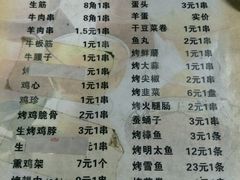 生筋 8角1串
牛肉串 8角1串
羊肉串 1.5元1串
牛板筋 1元1串
牛腰子 1元1串
烤 1元1串
鸡心 1元1串
鸡珍 1元1串
烤鸡脆骨 2元1串
生烤鸡脖 3元1串
生 元1串
熏鸡架 7元1个
蛋头 3元1串
羊蛋 实价
干豆菜卷 1元1串
鱼丸 2元1串
烤鲜蘑 1元1串
烤大蒜 1元1串
烤尖椒 2元1串
烤韭菜 6元1盘
烤火腿肠 2元1串
蚕蛹子 3元1串
烤棒鱼 3元1串
烤明太鱼 12元1条
烤雪鱼 23元1条